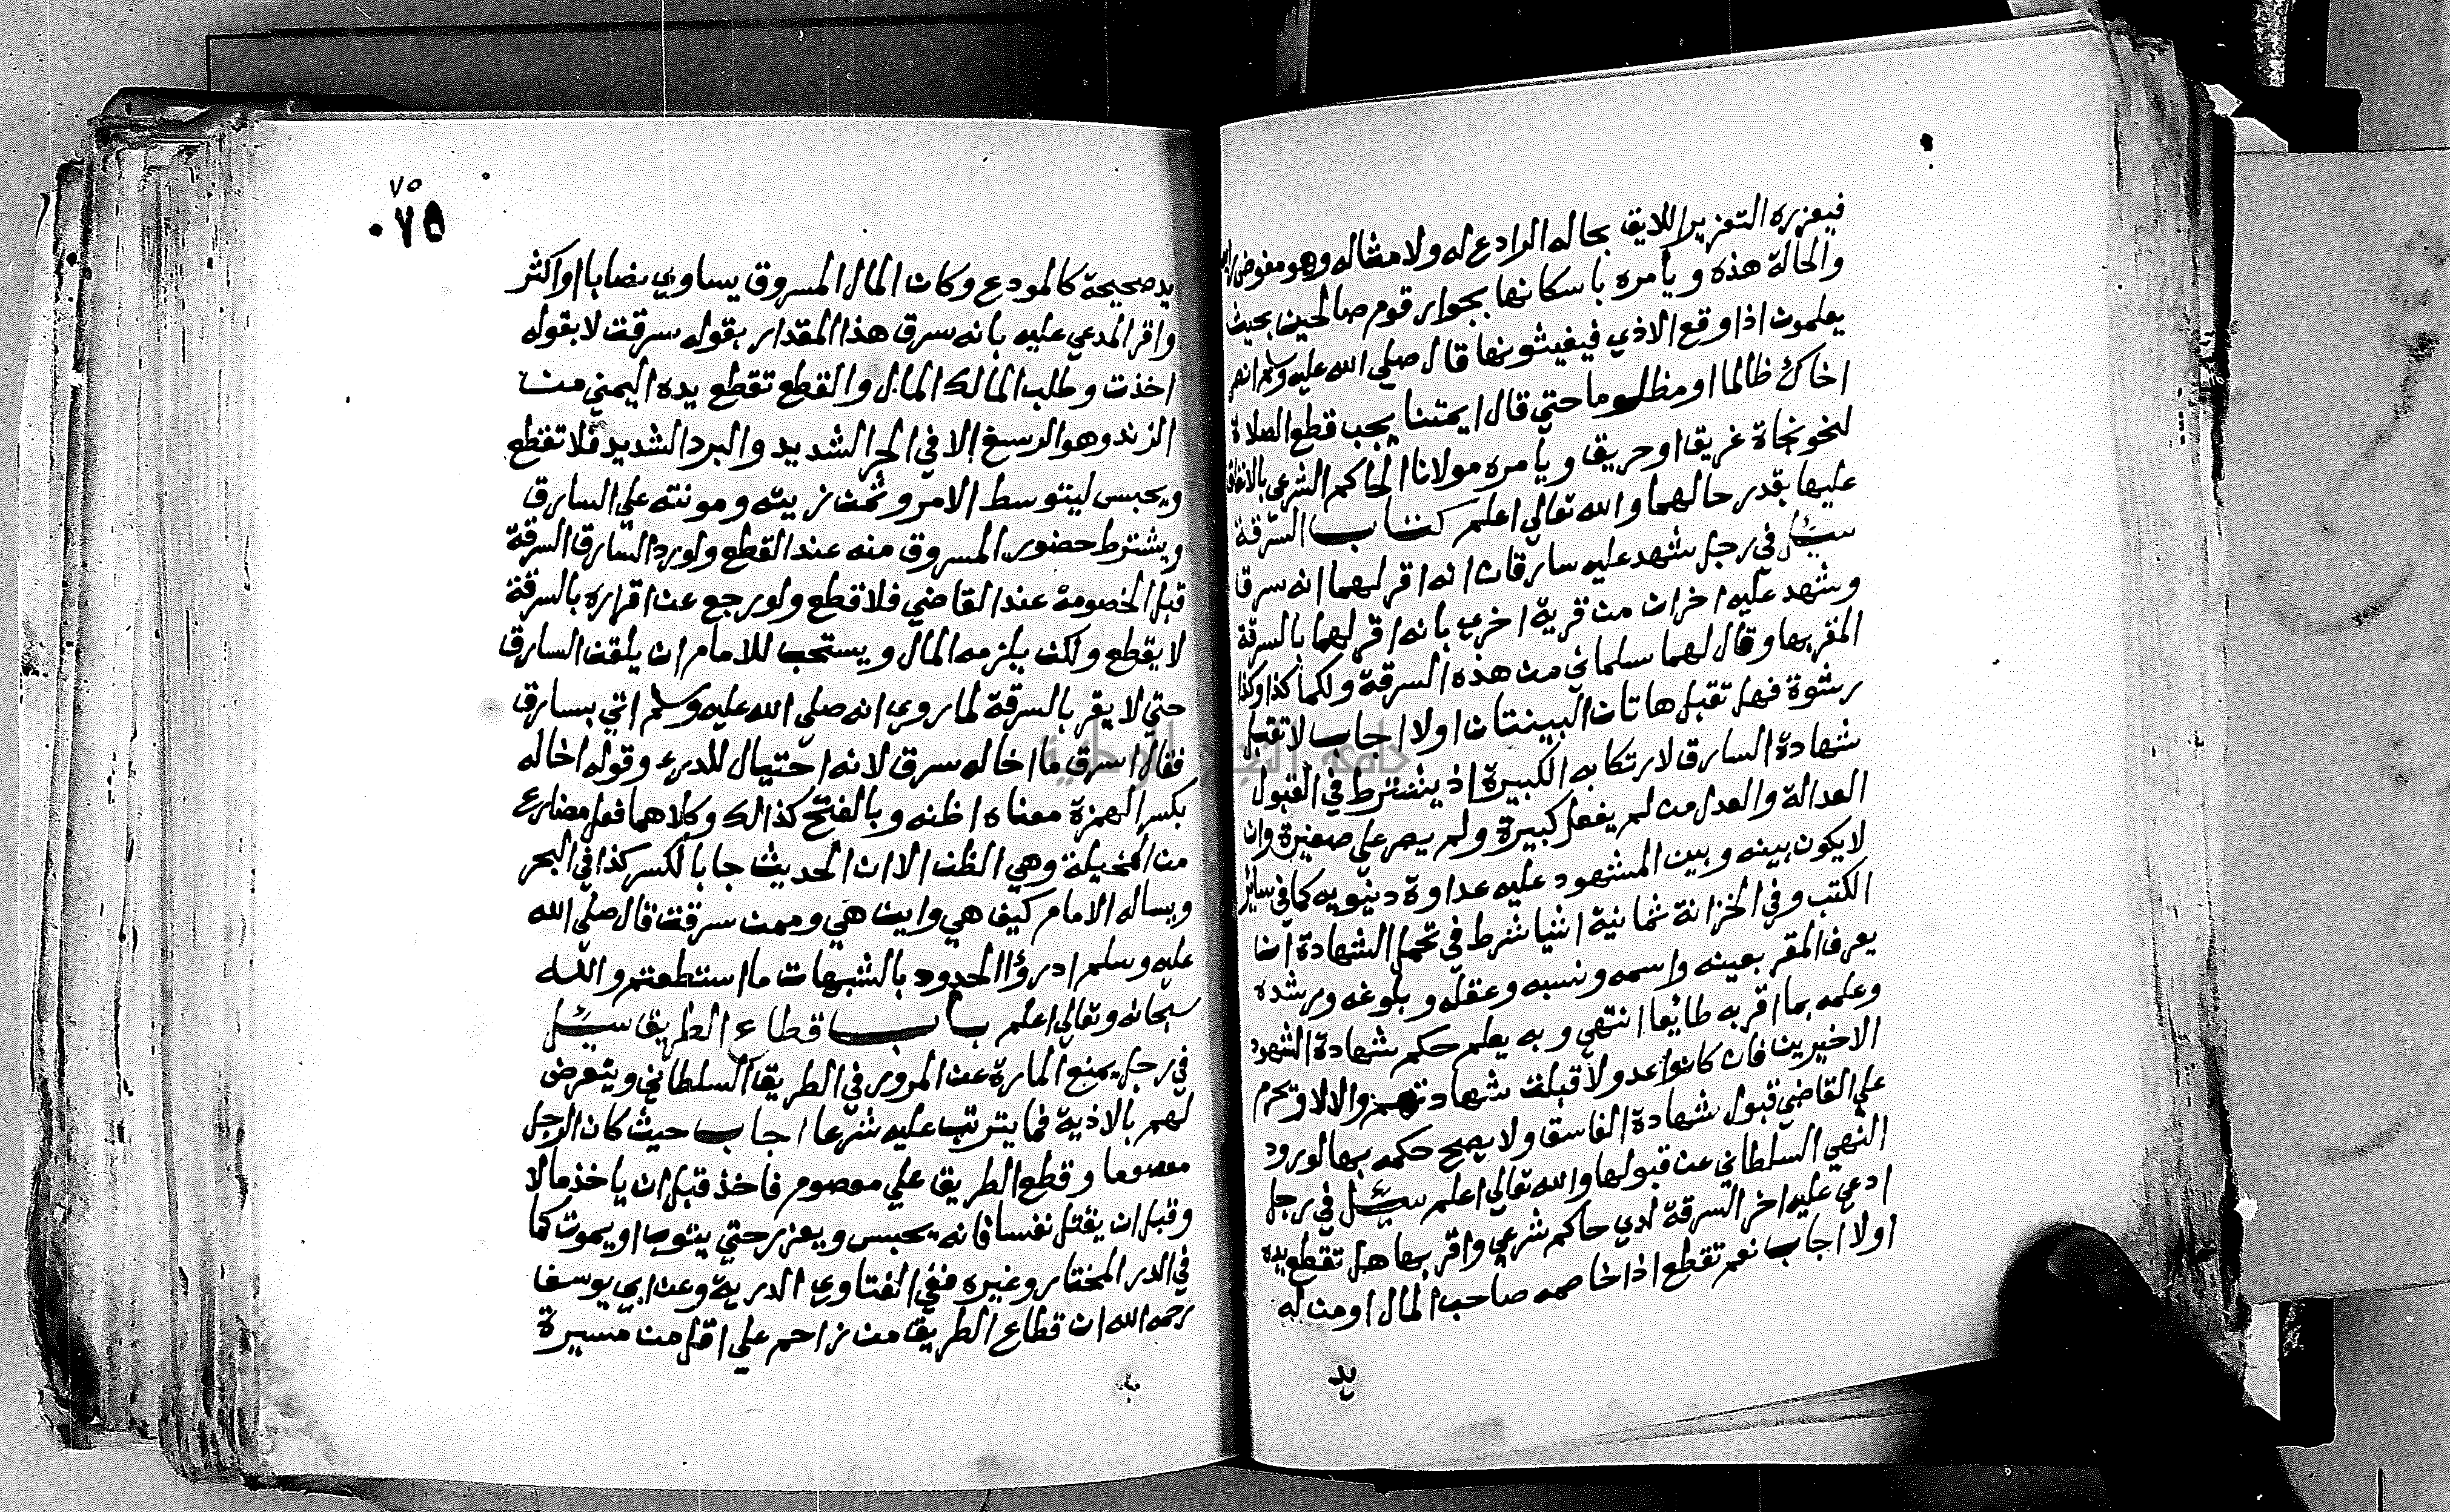 فيعزره التعزير اللايق بحاله الرادع له ولامثاله وهو مفوض
والحالة هذه ويأمره باسكانها بجوار قوم صالحين بحيث
يعلمون اذا وقع الاذي فيغيثونها قال صلى الله عليه وسلم انصر
اخاك ظالما او مظلوما حتي قال ايمتنا يجب قطع الصلاة
لنحو نجاة غريق او حريق ويأمره مولانا الحاكم الشرعي بالانفاق
عليها بقدر حالهما والله تعالي اعلم كتاب السرقة
سئل في رجل شهد عليه سارقان انه اقر لهما انه سرق
وشهد عليه اخران من قرية اخري بانه اقر لهما بالسرقة
المقر بها وقال لهما سلماني من هذه السرقة ولكما كذا وكذا
رشوة فهل تقبل هاتان البينتان اولا اجاب لا تقبل
شهادة السارق لارتكابه الكبيرة اذ يشترط في القبول
العدالة والعدل من لم يفعل كبيرة ولم يصر علي صغيرة وان
لا يكون بينه وبين المشهود عليه عداوة دنيويه كما في ساير
الكتب وفي الخزانة ثمانية اشيا شرط في تحمل الشهادة ان
يعرف المقر بعينه واسمه ونسبه وعقله وبلوغه ورشده
وعلمه بما اقر به طائعا انتهي وبه يعلم حكم شهادة الشهود
الاخيرين فان كانوا عدولا قبلت شهادتهم والا لا وتحرم
علي القاضي قبول شهادة الفاسق ولا يصح حكمه بها لورود
النهي السلطاني عن قبولها والله تعالي اعلم سئل في رجل
ادعي عليه اخر السرقة لدي حاكم شرعي واقر بها هل تقطع يده
اولا اجاب نعم تقطع اذا خاصمه صاحب المال او من له
يد
٧٥
٠٧٥
يد صحيحة كالمودع وكان المال المسروق يساوي نصابا او اكثر
واقر المدعي عليه بانه سرق هذا المقدار بقوله سرقت لا بقوله
اخذت وطلب المالك المال والقطع تقطع يده اليمني من
الزند وهو الرسغ الا في الحر الشديد والبرد الشديد فلا تقطع
ويحبس ليتوسط الامر وثمن زيته ومونته علي السارق
ويشترط حضور المسروق منه عند القطع ولو رد السارق السرقة
قبل الخصومة عند القاضي فلا قطع ولو رجع عن اقراره بالسرقة
لا يقطع ولكن يلزمه المال ويستحب للامام ان يلقن السارق
حتي لا يقر بالسرقة لما روي انه صلي الله عليه وسلم اتي بسارق
فقال اسرق ما اخاله سرق لانه احتيال للدرء وقوله اخاله
بكسر الهمزة معناه اظنه وبالفتح كذالك وكلاهما فعل مضارع
من المخيلة وهي الظن الا ان الحديث جا بالكسر كذا في البحر
ويساله الامام كيف هي واين هي وممن سرقت قال صلي الله
عليه وسلم ادرؤا الحدود بالشبهات ما استطعتم والله
سبحانه وتعالي اعلم باب قطاع الطريق سئل
في رجل يمنع المارة عن المرور في الطريق السلطاني ويتعرض
لهم بالاذية فما يترتب عليه شرعا اجاب حيث كان الرجل
معصوما وقطع الطريق علي معصوم فاخذ قبل ان ياخذ مالا
وقبل ان يقتل نفسا فانه يحبس ويعزر حتي يتوب او يموت كما
في الدر المختار وغيره ففي الفتاوي الدرية وعن ابي يوسف
رحمه الله ان قطاع الطريق من زاحم علي اقل من مسيرة